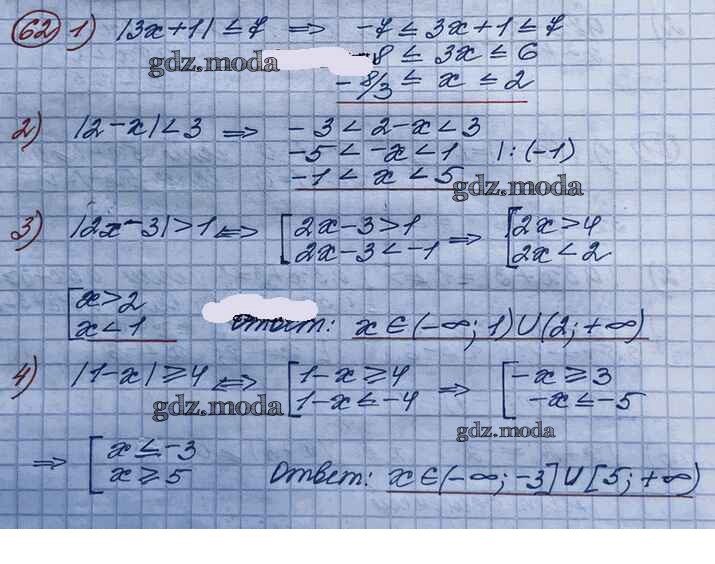 62 1) |3x+1| ≤ 7 ⇒ -7 ≤ 3x+1 ≤ 7
gdz.moda 8 ≤ 3x ≤ 6
-8/3 ≤ x ≤ 2
2) |2-x| < 3 ⇒ -3 < 2-x < 3
-5 < -x < 1 | : (-1)
-1 < x < 5
gdz.moda
3) |2x-3| > 1 ⇔ [ 2x-3 > 1 ⇒ [ 2x > 4
2x-3 < -1 2x < 2
[ x > 2
x < 1 Ответ: x ∈ (-∞; 1) ∪ (2; +∞)
4) |1-x| ≥ 4 ⇔ [ 1-x ≥ 4 ⇒ [ -x ≥ 3
gdz.moda 1-x ≤ -4 -x ≤ -5
gdz.moda
⇒ [ x ≤ -3
x ≥ 5 Ответ: x ∈ (-∞; -3] ∪ [5; +∞)